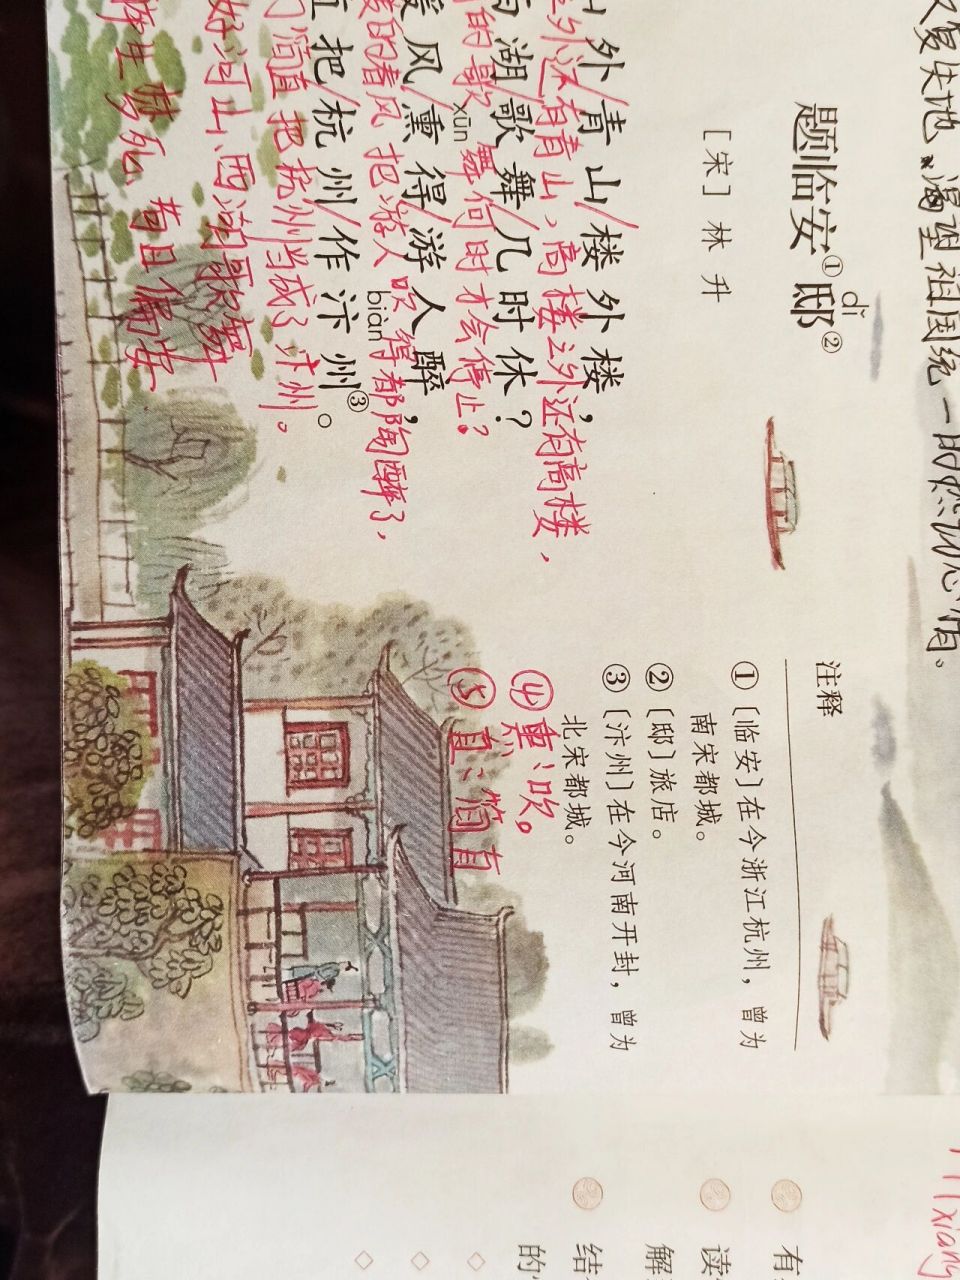 复失地、渴望祖国统一的热切心情。
dǐ
题临安①邸②
[宋] 林 升
山外青山楼外楼，
外还有青山，高楼之外还有高楼，
湖歌舞几时休？
的歌舞何时才会停止？
xūn
暖风熏得游人醉，
暖的春风把游人吹得都陶醉了，
bian
直把杭州作汴州③。
们简直把杭州当成了汴州。
好河山、西湖歌舞
醉生梦死、苟且偷安
注释
①〔临安〕在今浙江杭州，曾为
南宋都城。
②〔邸〕旅店。
③〔汴州〕在今河南开封，曾为
北宋都城。
④熏：吹。
⑤直：简直
xiang
有
读
解
结
的